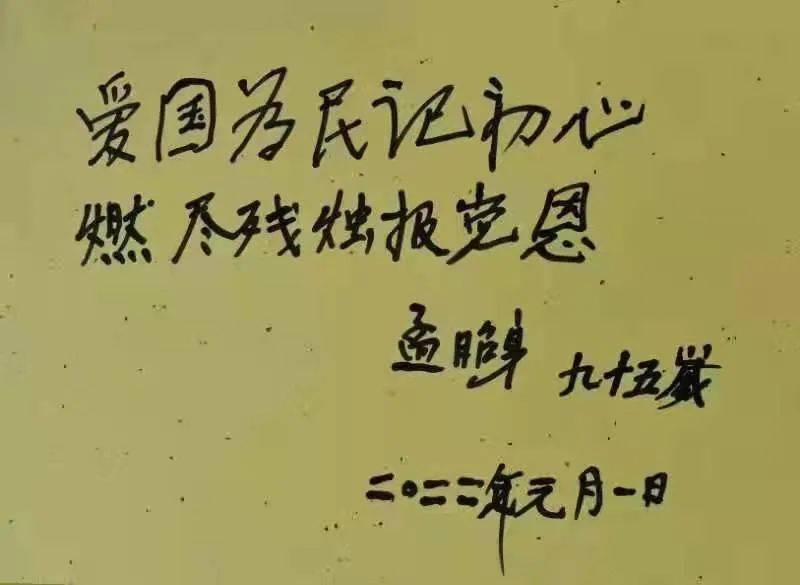 爱国为民记初心
燃尽残烛报党恩
孟昭 九十五岁
二〇二二年元月一日